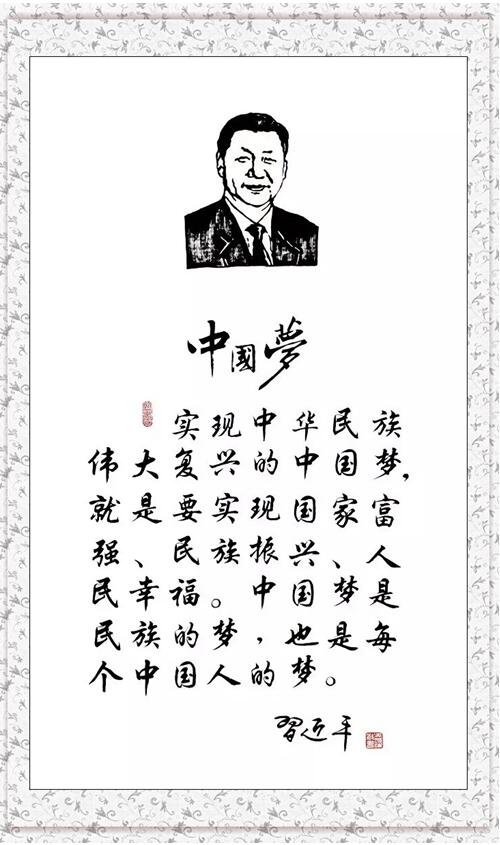 中國夢
实现中华民族
伟大复兴的中国梦，
就是要实现国家富
强、民族振兴、人
民幸福。中国梦是
民族的梦，也是每
个中国人的梦。
習近平